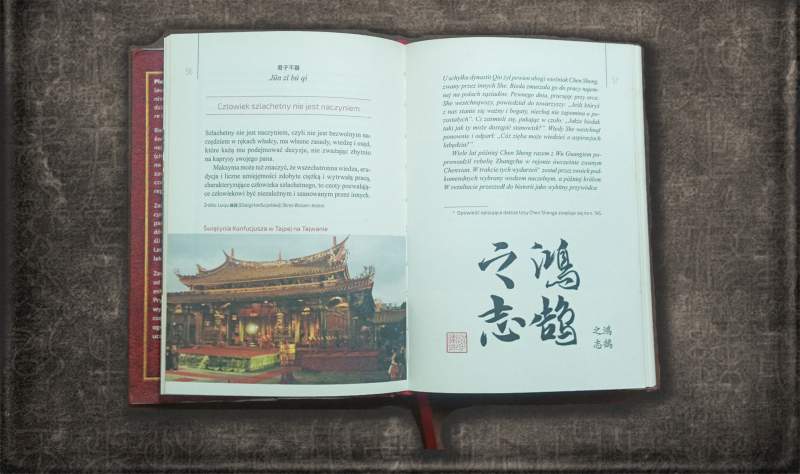 56
君子不器
Jūn zǐ bù qì
Człowiek szlachetny nie jest naczyniem
Szlachetny nie jest naczyniem, czyli nie jest bezwolnym na-
rzędziem w rękach władcy, ma własne zasady, wiedzę i osąd,
które każą mu podejmować decyzje, nie zważając zbytnio
na kaprysy swojego pana.
Maksyma może też znaczyć, że wszechstronna wiedza, eru-
dycja i liczne umiejętności zdobyte ciężką i wytrwałą pracą,
charakteryzujące człowieka szlachetnego, to cnoty pozwalają-
ce człowiekowi być niezależnym i szanowanym przez innych.
Świątynia Konfucjusza w Tajpej na Tajwanie
57
U schyłku dynastii Qin żył pewien ubogi wieśniak Chen Sheng,
zwany przez innych She. Bieda zmuszała go do pracy najem-
nej na polach sąsiadów. Pewnego dnia, pracując przy orce,
She westchnąwszy, powiedział do towarzyszy: „Jeśli któryś
z nas stanie się ważny i bogaty, niechaj nie zapomina o po-
zostałych". Ci zaśmiali się, pukając w czoło: „Jakże biedak
taki jak ty może dostąpić stanowisk?". Wtedy She westchnął
ponownie i odparł: „Cóż zięba może wiedzieć o aspiracjach
łabędzia?".
Wiele lat później Chen Sheng razem z Wu Guangiem po-
prowadził rebelię Zhangchu w rejonie ówcześnie zwanym
Chenxian. W trakcie tych wydarzeń* został przez swoich pod-
komendnych wybrany wodzem naczelnym, a później królem.
W rezultacie przeszedł do historii jako wybitny przywódca.
鴻鵠
之志
鴻鵠
之志